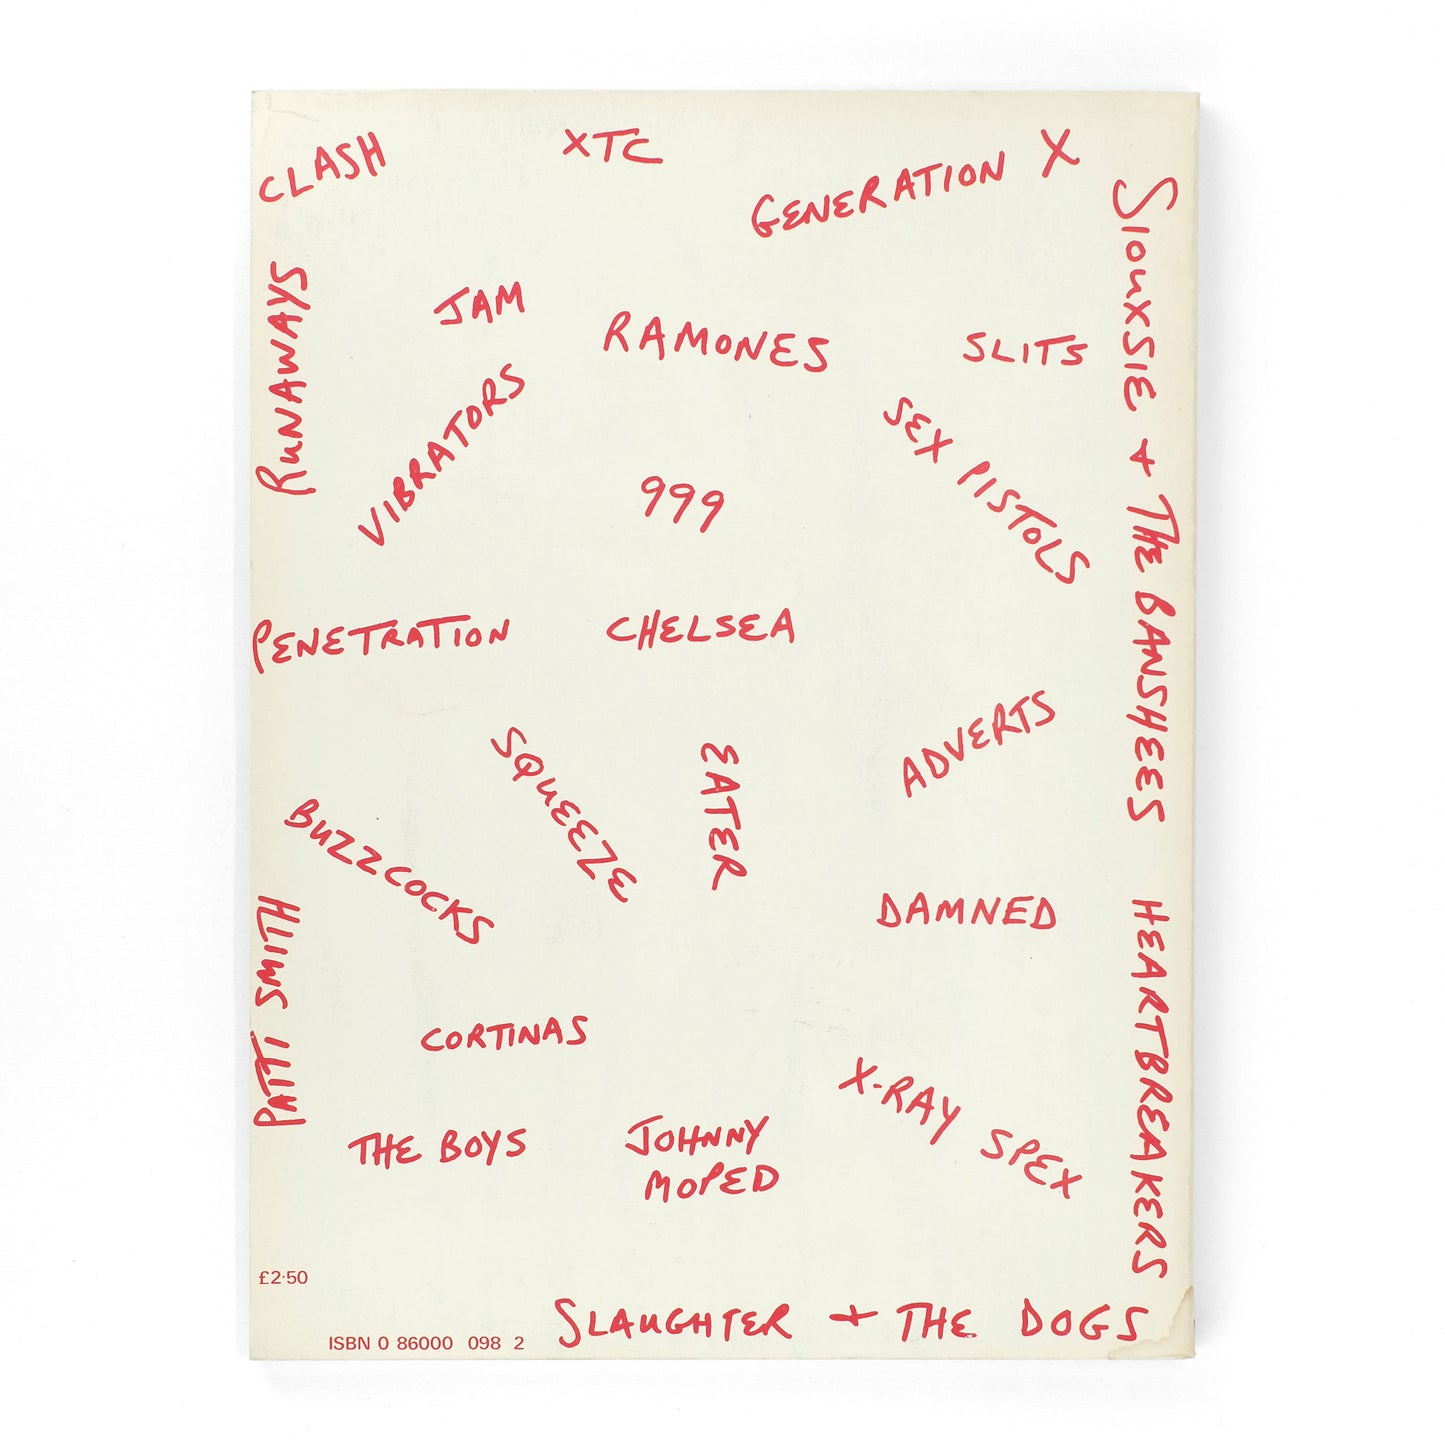 CLASH
XTC
GENERATION X
SIOUXSIE + THE BANSHEES
RUNAWAYS
JAM
RAMONES
SLITS
VIBRATORS
SEX PISTOLS
999
PENETRATION
CHELSEA
ADVERTS
SQUEEZE
EATER
BUZZCOCKS
DAMNED
HEARTBREAKERS
PATTI SMITH
CORTINAS
X-RAY SPEX
THE BOYS
JOHNNY
MOPED
£2·50
SLAUGHTER + THE DOGS
ISBN 0 86000 098 2